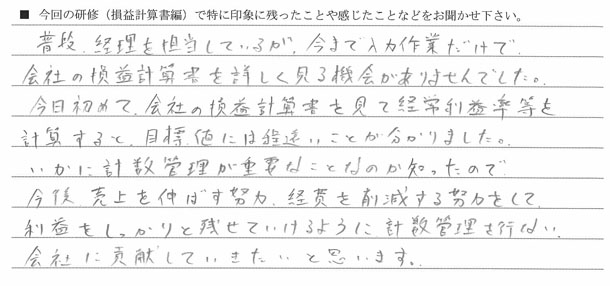 ■ 今回の研修（損益計算書編）で特に印象に残ったことや感じたことなどをお聞かせ下さい。
普段、経理を担当しているが、今まで入力作業だけで、
会社の損益計算書を詳しく見る機会がありませんでした。
今日初めて、会社の損益計算書を見て経常利益率等を
計算すると、目標値には程遠いことが分かりました。
いかに計数管理が重要なことなのか知ったので、
今後、売上を伸ばす努力、経費を削減する努力をして、
利益をしっかりと残せていけるように計数管理を行ない、
会社に貢献していきたいと思います。